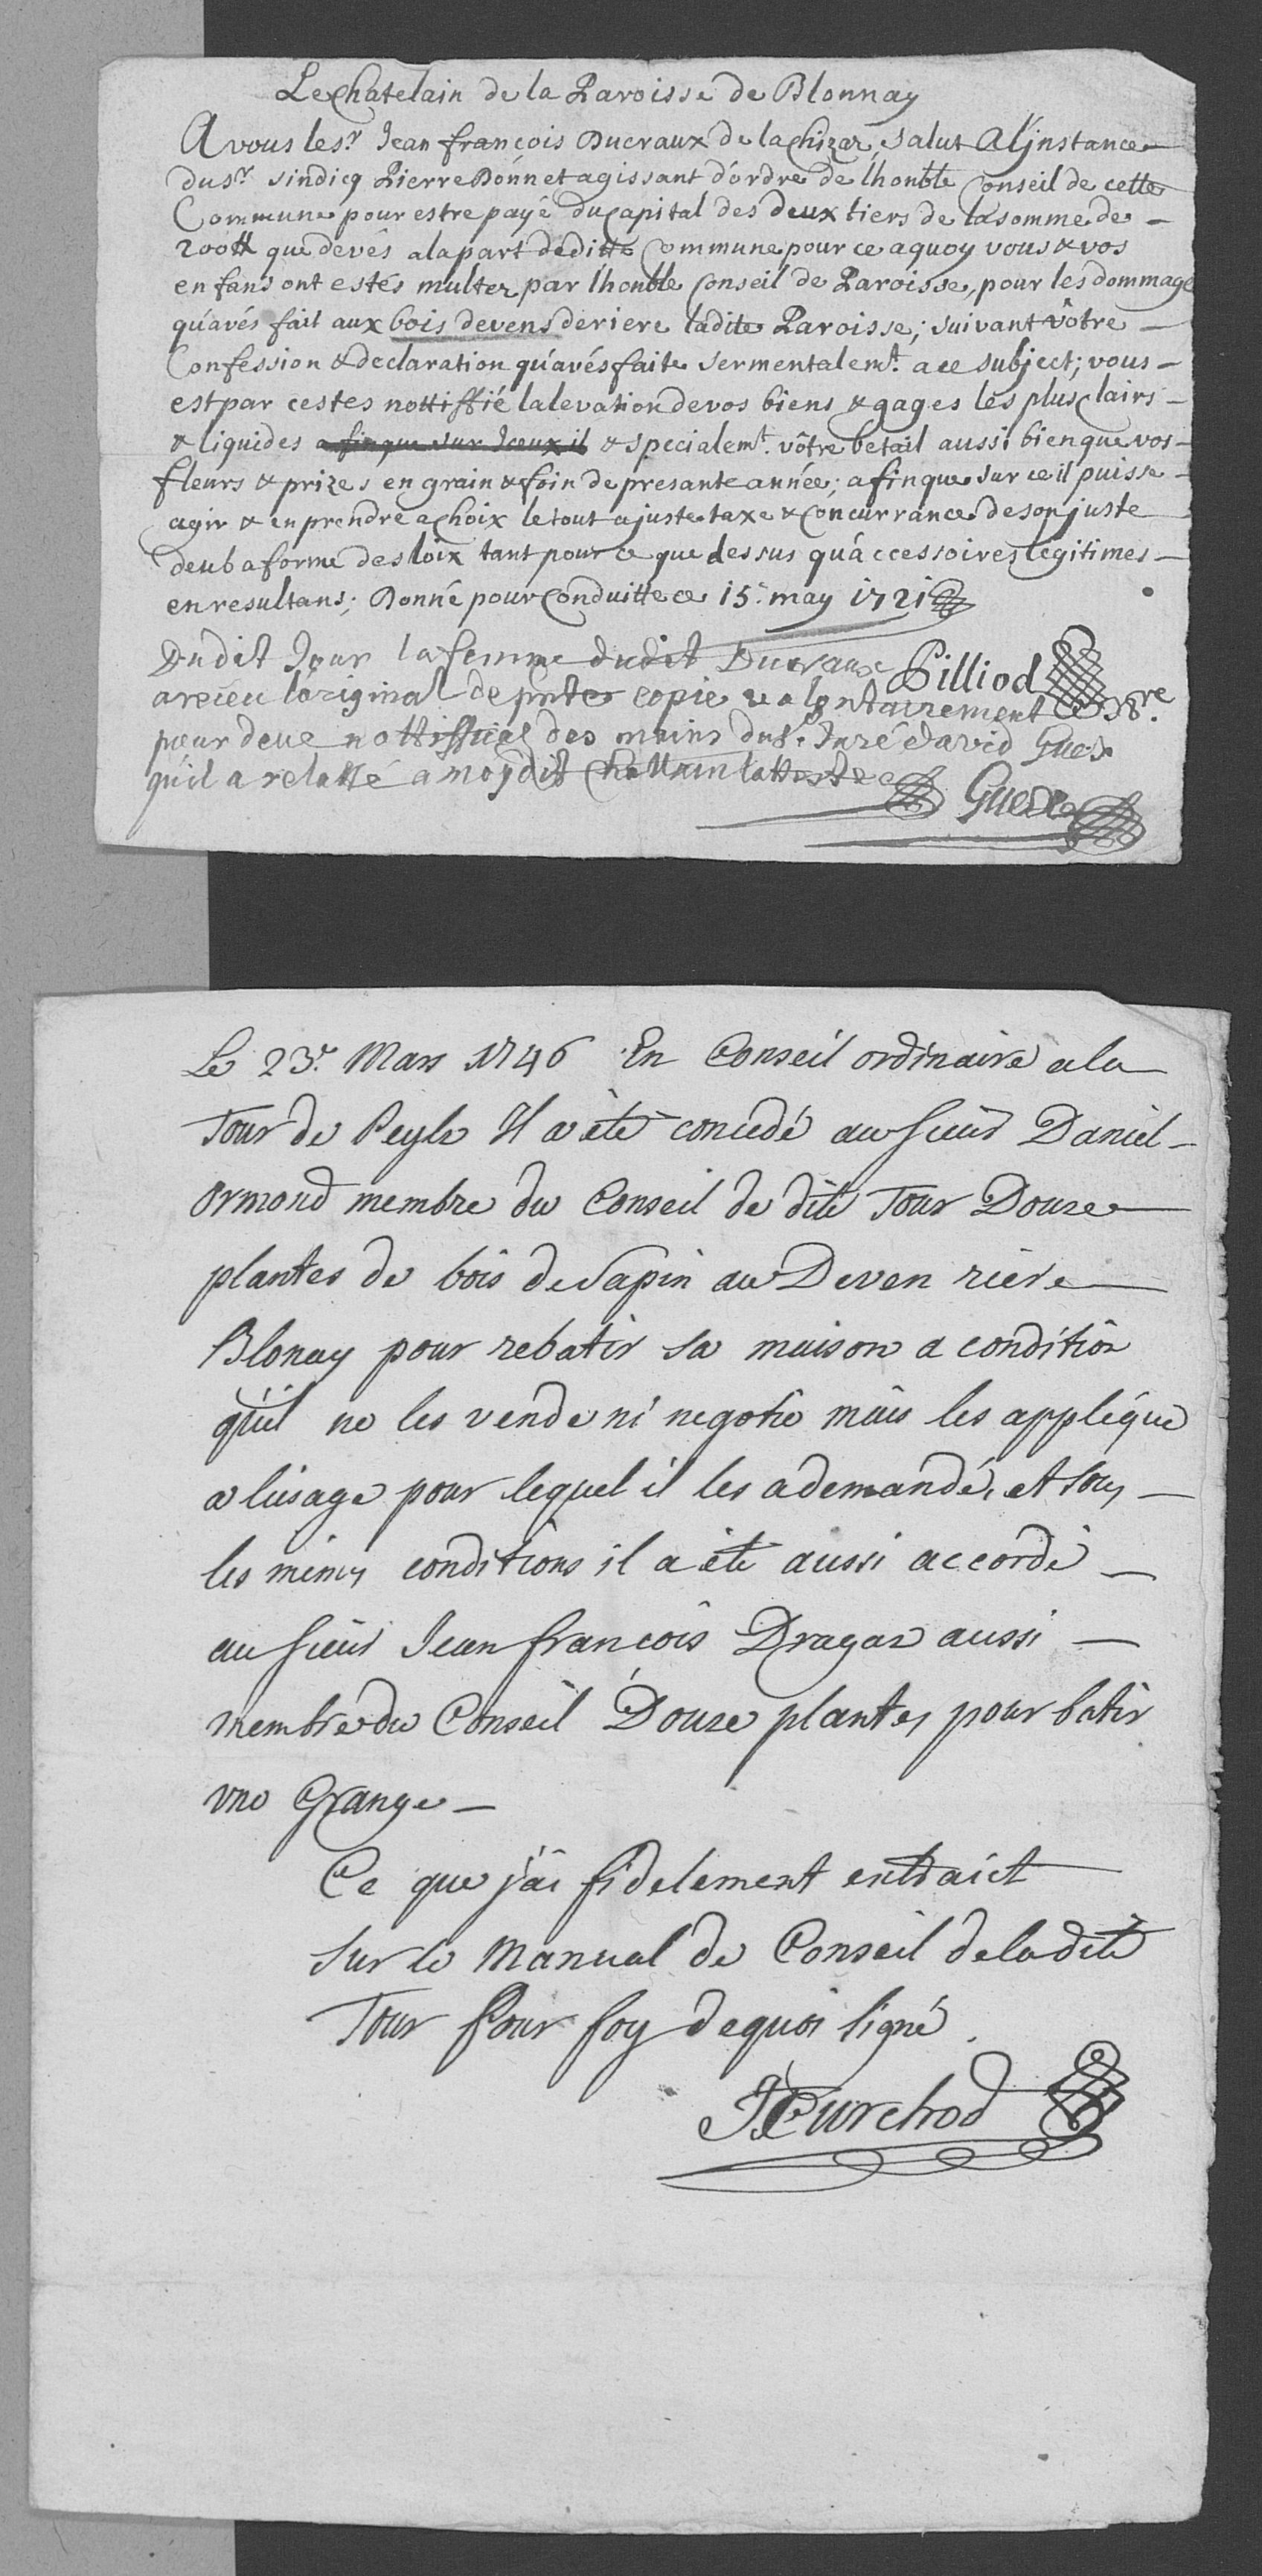 Le Chatelain de la Paroisse de Blonnay
A vous le sr. Jean françois Ducraux de la Chizaz, salut A Linstance
du sr. sindicq Pierre Bonnet agissant d'ordre de lhonble Conseil de cette
Commune pour estre payé du Capital des deux tiers de la somme de
200 tt que devés a la part de ditte Commune pour ce a quoy vous & vos
enfans ont estés multez par lhonble Conseil de Paroisse, pour les dommage
qu'avés fait aux bois devens deriere ladite Paroisse; suivant vôtre
Confession & declaration qu'avés faite sermentalemt. a ce subject; vous
est par cestes nottiffié la levation de vos biens & gages les plus clairs
& liquides afin que sur Iceux il & specialemt. vôtre betail aussi bien que vos
fleurs & prizes en grain & foin de presante année; afin que sur ce il puisse
agir & en prendre a choix le tout a juste taxe & Concurrance de son juste
deub a forme des loix tant pour ce que dessus qu'accessoires legitimes
en resultans; Donné pour Conduitte ce 15. may 1721
Dudit Jour la femme dudit Ducraux Pilliod
a receu loriginal de pnte copie volontairement
pour deue nottiffical des mains du sr. Juré david Guex
qu'il a relatté a moy dit Chattelain latteste
Guex
Le 23e. Mars 1746 En Conseil ordinaire a la
Tour de Peylz Il a été concedé au sieur Daniel
Ormond membre du Conseil de dite Tour Douze
plantes de bois de sapin au Deven riere
Blonay pour rebatir sa maison a condition
qu'il ne les vende ni negotie mais les applique
a lusage pour lequel il les a demandé, et sous
les mêmes conditions il a été aussi accordé
au sieur Jean françois Dragaz aussi
membre du Conseil Douze plantes pour batir
une Grange
Ce que j'ai fidelement extraict
sur le Manual de Conseil de la dite
Tour Pour foy de quoi signé.
JCurchod